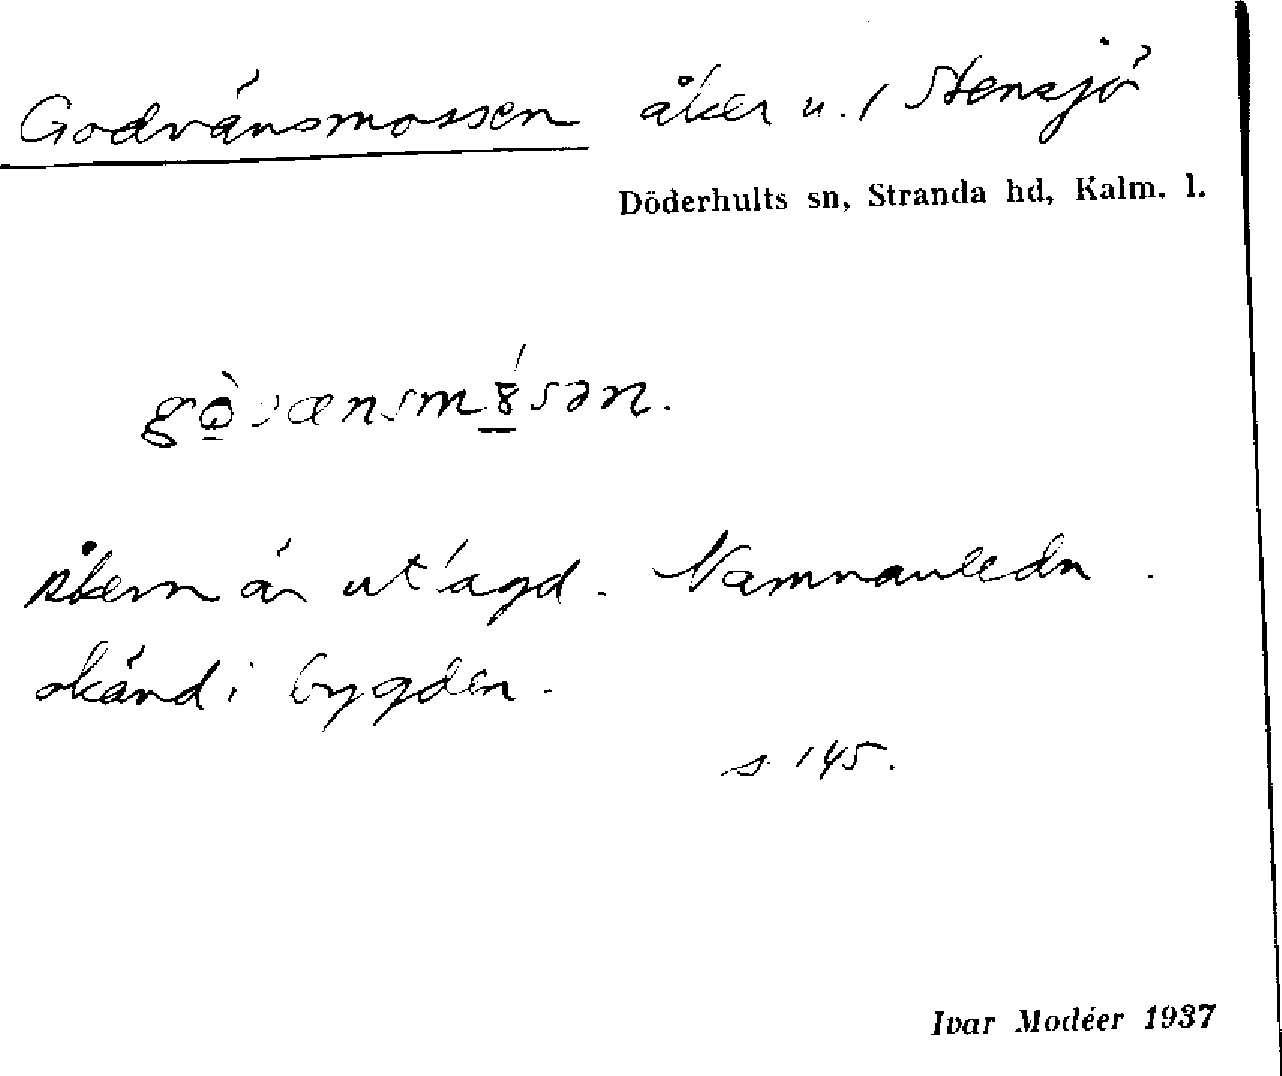 Godvänsmossen åker u. 1 Stensjö
Döderhults sn, Stranda hd, Kalm. l.
Åkern är utägd. Namnanledn.
okänd i bygden.
s. 145.
Ivar Modéer 1937